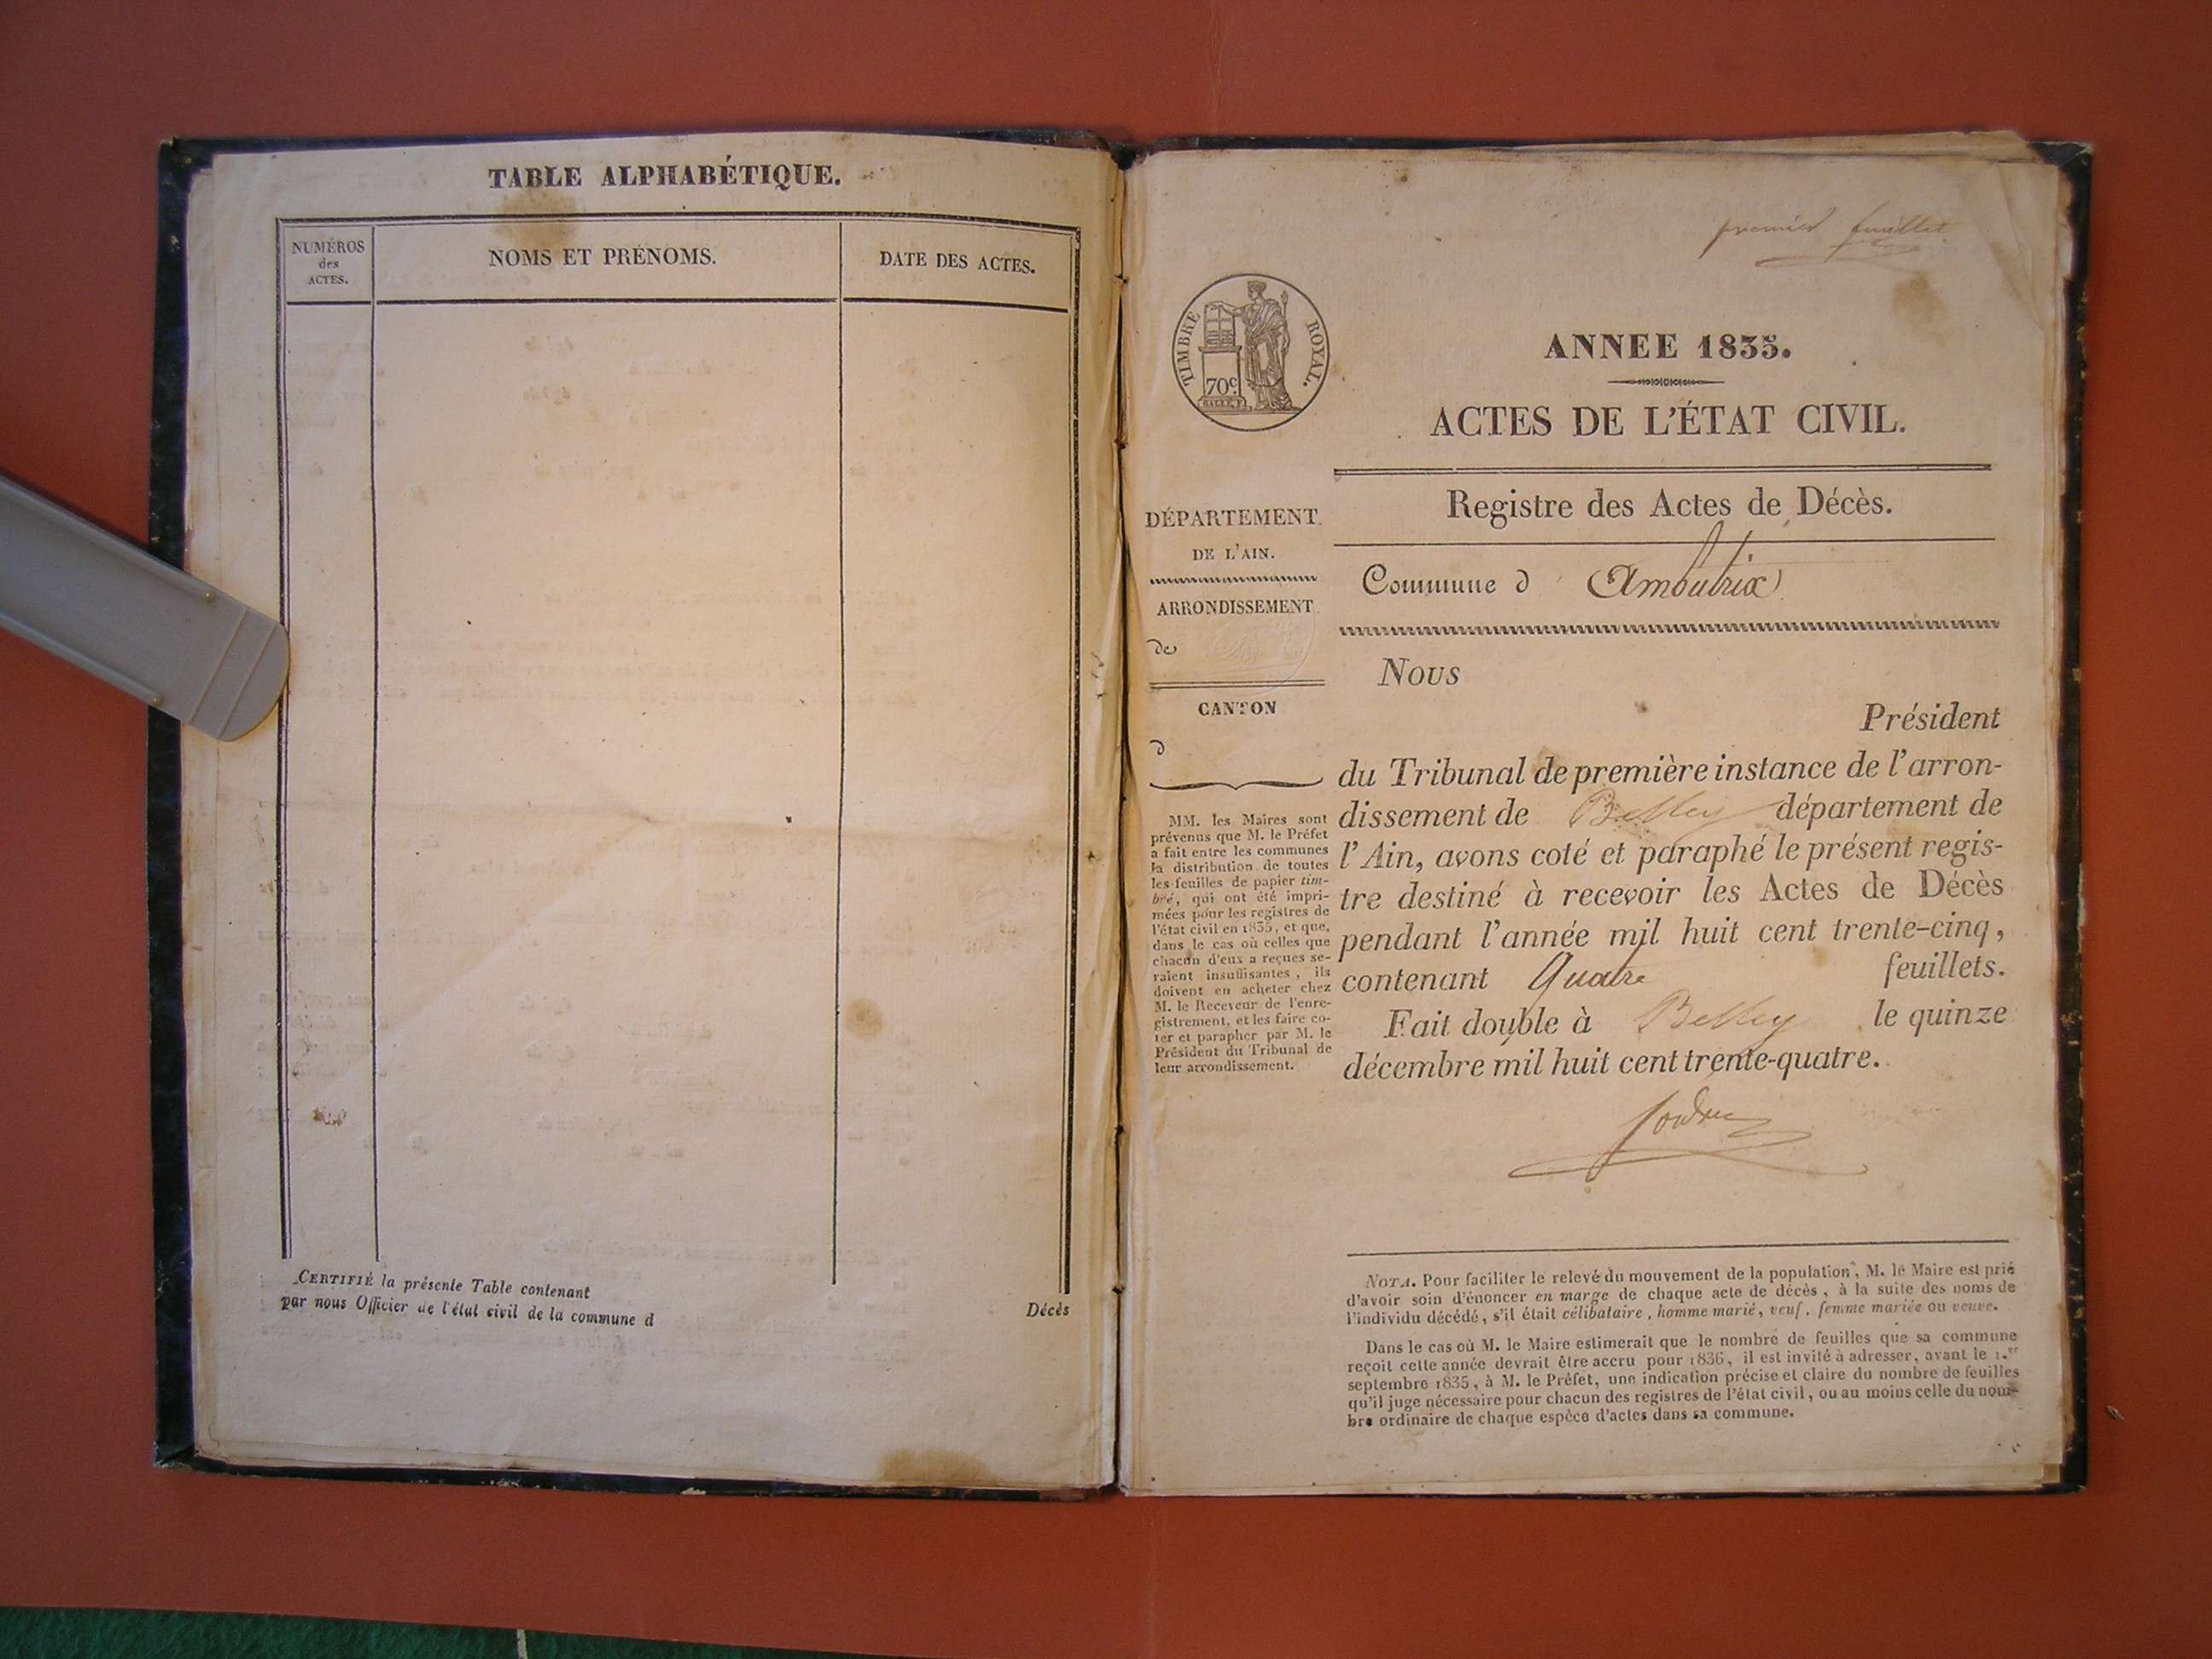 TABLE ALPHABÉTIQUE.
NUMÉROS
des
ACTES.
NOMS ET PRÉNOMS.
DATE DES ACTES.
CERTIFIÉ la présente Table contenant Décès
par nous Officier de l'état civil de la commune d
premier feuillet
TIMBRE ROYAL.
70c.
ANNEE 1835.
ACTES DE L'ÉTAT CIVIL.
DÉPARTEMENT
DE L'AIN.
ARRONDISSEMENT
de
CANTON
d
MM. les Maires sont
prévenus que M. le Préfet
a fait entre les communes
la distribution de toutes
les feuilles de papier tim-
bré, qui ont été impri-
mées pour les registres de
l'état civil en 1835, et que,
dans le cas où celles que
chacun d'eux a reçues se-
raient insuffisantes, ils
doivent en acheter chez
M. le Receveur de l'enre-
gistrement, et les faire co-
ter et parapher par M. le
Président du Tribunal de
leur arrondissement.
Registre des Actes de Décès.
Commune d'Amblutrix
Nous
Président
du Tribunal de première instance de l'arron-
dissement de Belley département de
l'Ain, avons coté et paraphé le présent regis-
tre destiné à recevoir les Actes de Décès
pendant l'année mil huit cent trente-cinq,
contenant Quatre feuillets.
Fait double à Belley le quinze
décembre mil huit cent trente-quatre.
NOTA. Pour faciliter le relevé du mouvement de la population, M. le Maire est prié
d'avoir soin d'énoncer en marge de chaque acte de décès, à la suite des noms de
l'individu décédé, s'il était célibataire, homme marié, veuf, femme mariée ou veuve.
Dans le cas où M. le Maire estimerait que le nombre de feuilles que sa commune
reçoit cette année devrait être accru pour 1836, il est invité à adresser, avant le 1.er
septembre 1835, à M. le Préfet, une indication précise et claire du nombre de feuilles
qu'il juge nécessaire pour chacun des registres de l'état civil, ou au moins celle du nom-
bre ordinaire de chaque espèce d'actes dans sa commune.